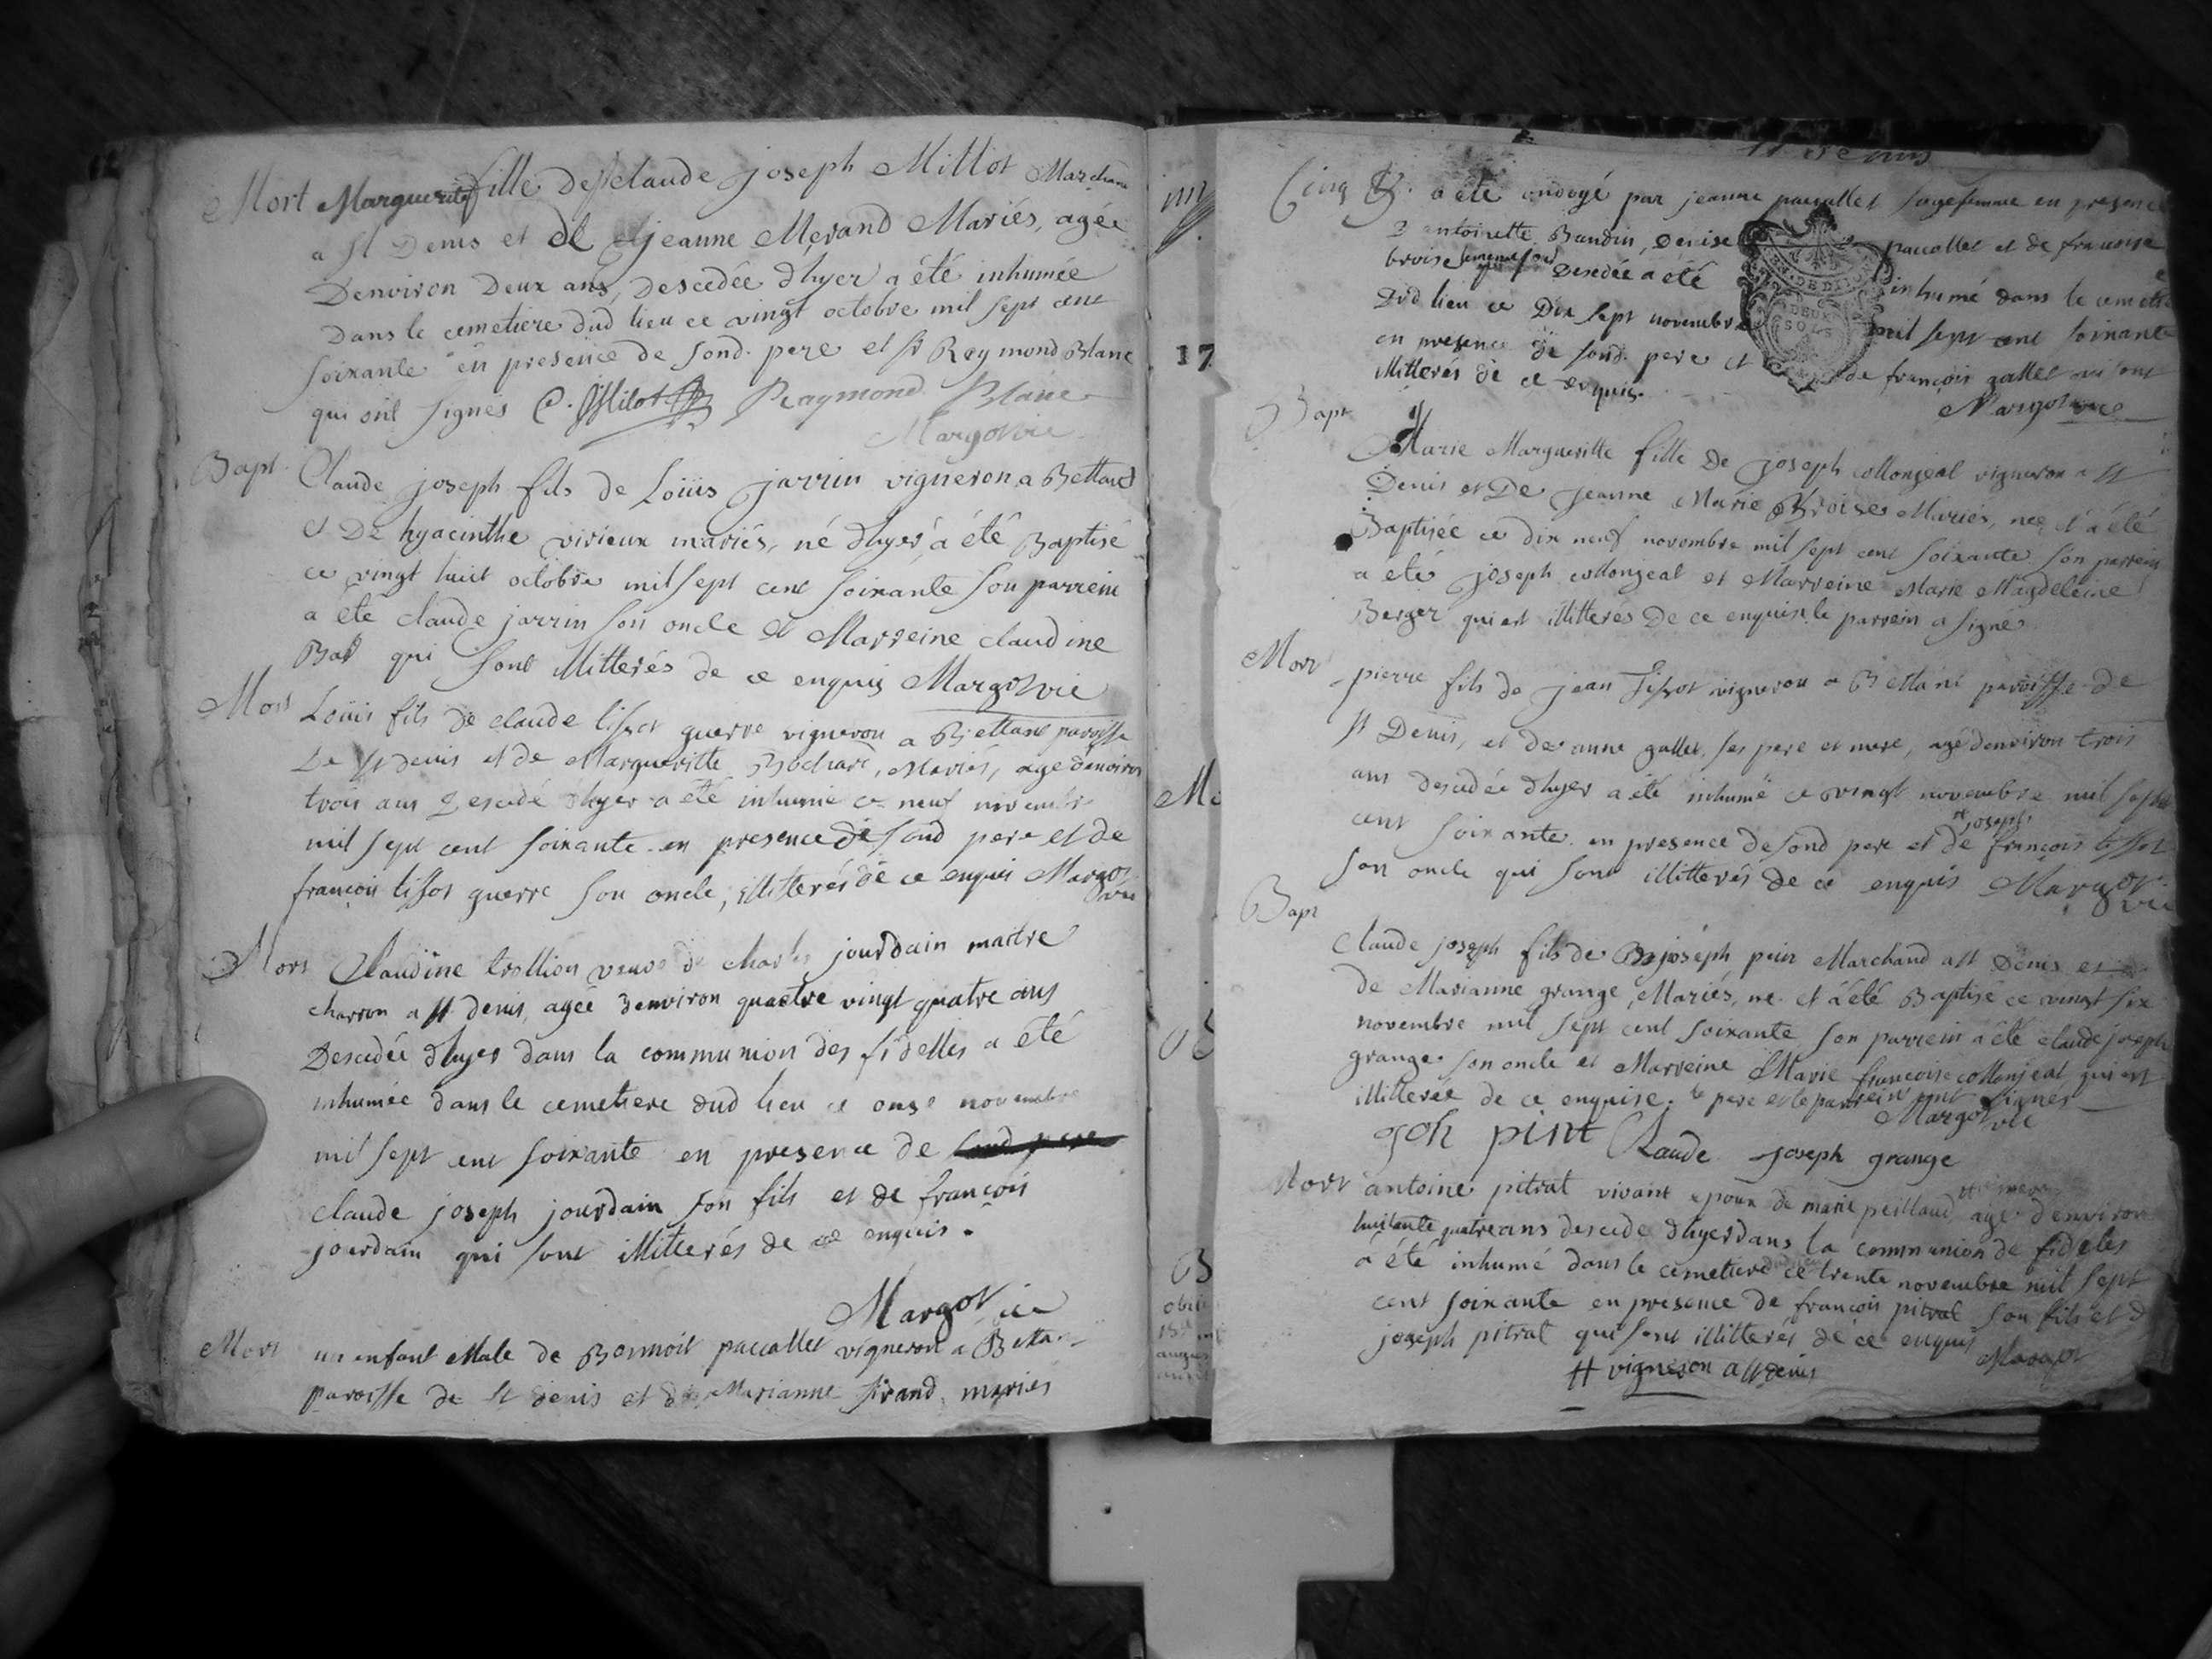 Mort Marguerite fille de Sr claude joseph Millot Marchand
a St Denis et de jeanne Merand Mariés, agée
Denviron Deux ans, Descedée dhyer a été inhumée
Dans le cemetiere dud lieu ce vingt octobre mil sept cent
soixante en presence de sond. pere et Sr Reymond Blanc
qui ont signés C. J Milot Raymond Blanc
Margot vic
Bapt. Claude joseph fils de Loüis jarrin vigneron a Bettant
et De hyacinthe virieux mariés, né dhyer a été Baptisé
ce vingt huit octobre mil sept cent soixante son parrein
a été claude jarrin son oncle et Marreine claudine
qui sont illitterés de ce enquis Margot vic
Mort Loüis fils de claude tissot guerre vigneron a Bettant paroisse
De St denis et de Margueritte Bochard, Mariés, age denviron
trois ans Descedé dhyer a été inhumé ce neuf novembre
mil sept cent soixante en presence de sond pere et de
françois tissot guerre son oncle, illitterés de ce enquis Margot
vic
Mort Claudine trollion veuve de charles jourdain maitre
charron a St denis, agée denviron quatre vingt quatre ans
Descedée dhyer dans la communion des fidelles a été
inhumée dans le cemetiere dud lieu ce onze novembre
mil sept cent soixante en presence de sond pere
claude joseph jourdain son fils et de françois
jourdain qui sont illitterés de ce enquis.
Margot vic
Mort un enfant Male de Bennoit paccallet vigneron a Bettant
paroisse de St denis et de Marianne sirand mariés
St Denis
Cinq a été ondoyé par jeanne paccallet sagefemme en presence
D antoinette Baudin, Denise paccallet et de francoise
broise Descedée a été inhumé dans le cemetiere
Dud lieu ce Dix sept novembre mil sept cent soixante
en presence de sond. pere et de françois gallet qui sont
illitterés de ce enquis. Margot vic
GEN. DE DIJON
DEUX
SOLS
Bapt
Marie Margueritte fille De joseph collonjeal vigneron a St
Denis et De jeanne Marie Broise Mariés, nee et a été
Baptisée ce dix neuf novembre mil sept cent soixante son parrein
a été joseph collonjeal et Marreine Marie Magdeleine
Berger qui est illitterés De ce enquis. le parrein a signé
Mort pierre fils de jean Tissot vigneron a Bettant paroisse de
St Denis, et de anne gallet, ses pere et mere, agé denviron trois
ans descedée dhyer a été inhumé ce vingt novembre mil sept
cent soixante en presence de sond pere et de françois joseph tissot
son oncle qui sont illitterés de ce enquis Margot
vic
Bapt
Claude joseph fils de joseph pint Marchand a St Denis et
de Marianne grange, Mariés, ne et a été Baptisé ce vingt six
novembre mil sept cent soixante son parrein a été claude joseph
grange son oncle et Marreine Marie francoise collonjeat, qui est
illitterée de ce enquise. le pere et le parrein ont signés
Margot vic
Joh pint Claude joseph grange
Mort antoine pitrat vivant epoux de marie peillaud, age denviron
huitante quatre ans descede dhyer dans la communion de fideles
a été inhumé dans le cemetiere dud lieu ce trente novembre mil sept
cent soixante en presence de françois pitrat son fils et d
joseph pitrat qui sont illitterés de ce enquis
Margot
# vigneron a St denis